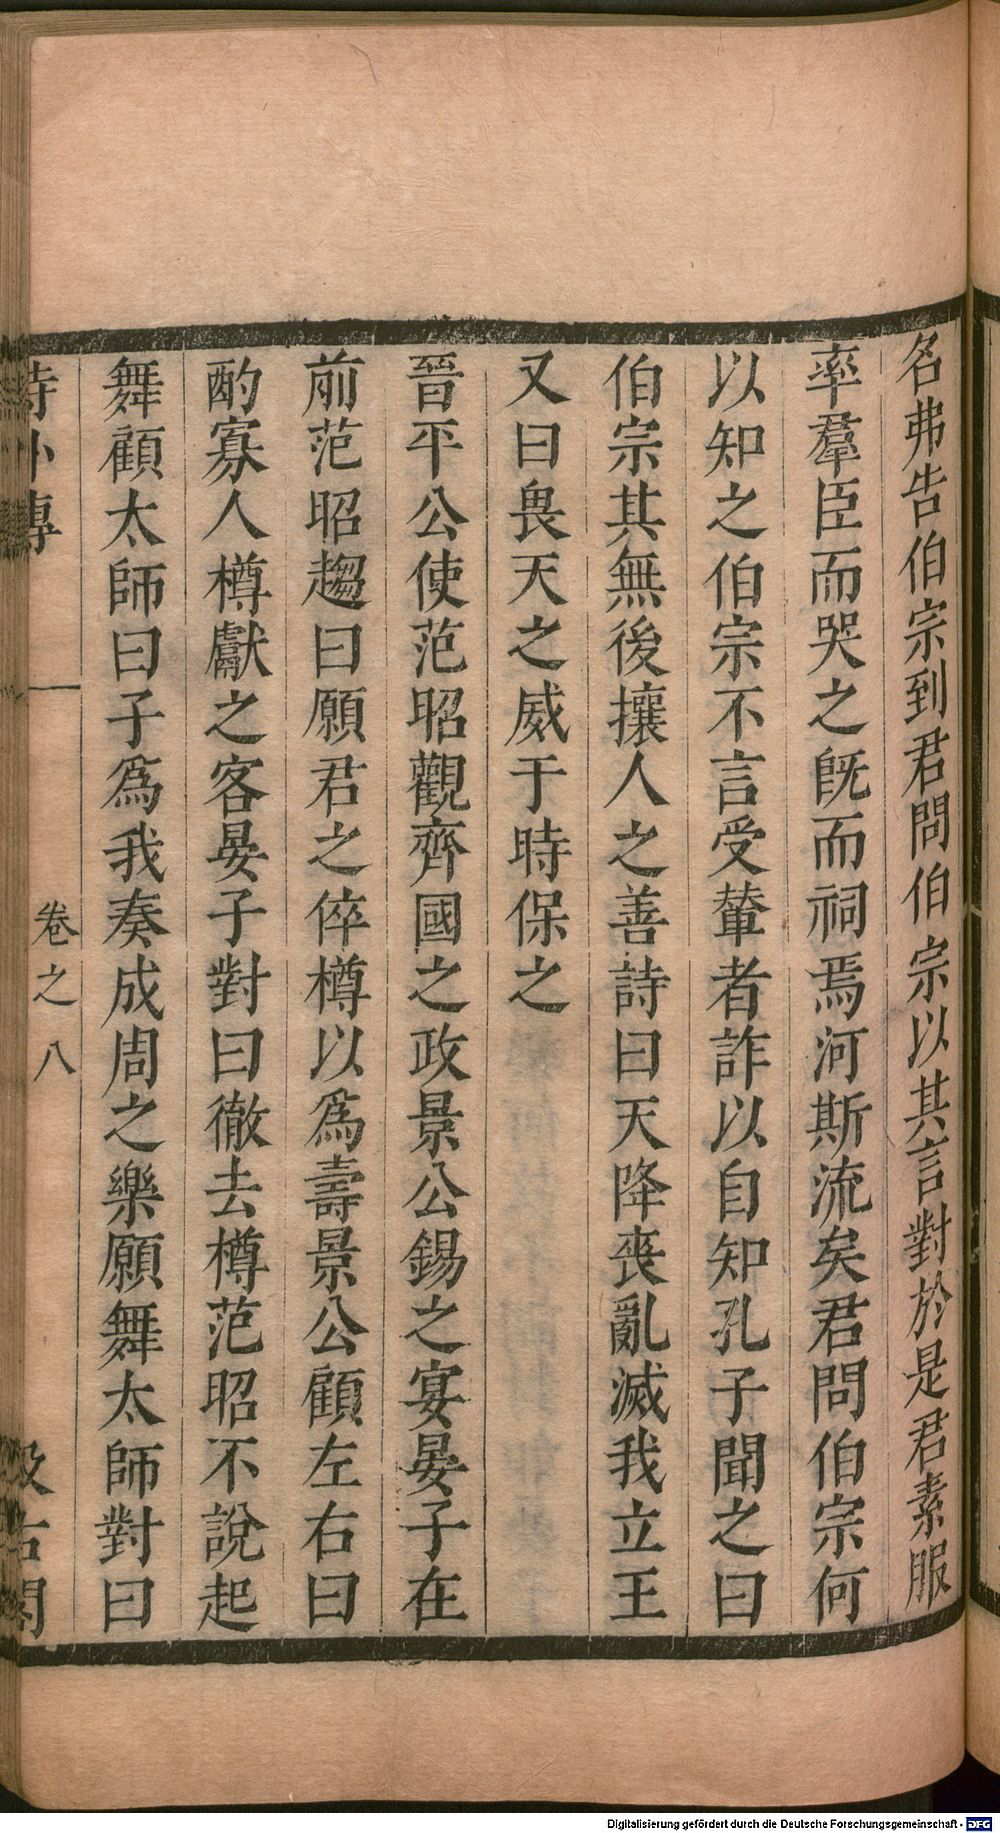 名弗告伯宗到君問伯宗以其言對於是君素服
率羣臣而哭之旣而祠焉河斯流矣君問伯宗何
以知之伯宗不言受輦者詐以自知孔子聞之曰
伯宗其無後攘人之善詩曰天降喪亂滅我立王
又曰畏天之威于時保之
晉平公使范昭觀齊國之政景公錫之宴晏子在
前范昭趨曰願君之倅樽以爲壽景公顧左右曰
酌寡人樽獻之客晏子對曰徹去樽范昭不說起
舞顧太師曰子爲我奏成周之樂願舞太師對曰
詩外傳
卷之八
汲古閣
Digitalisierung gefördert durch die Deutsche Forschungsgemeinschaft - DFG